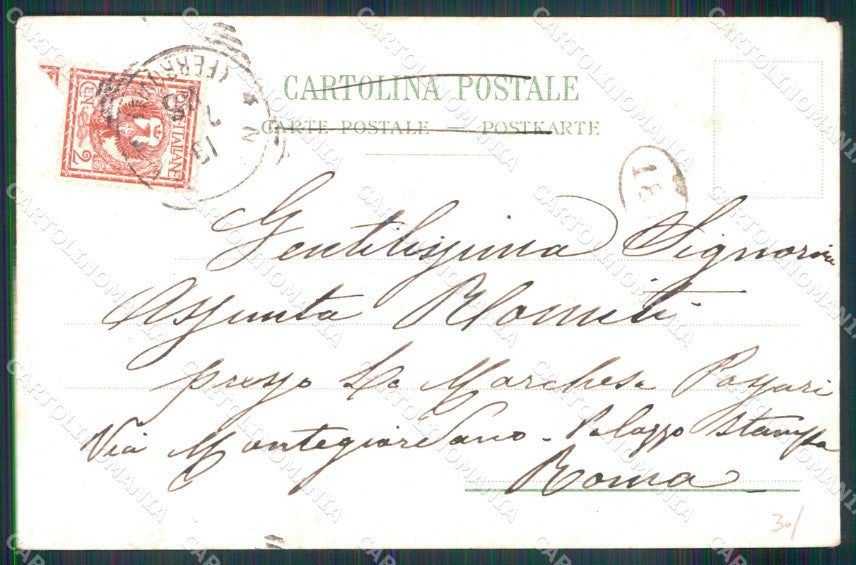 CARTOLINA POSTALE
CARTE POSTALE — POSTKARTE
ITALIANE
CEN 2
(FERROVIA)
18
Gentilissima Signorina
Assunta Romiti
presso La Marchesa
Via Montegiordano - Palazzo
Roma
30/
CARTOLINOMANIA